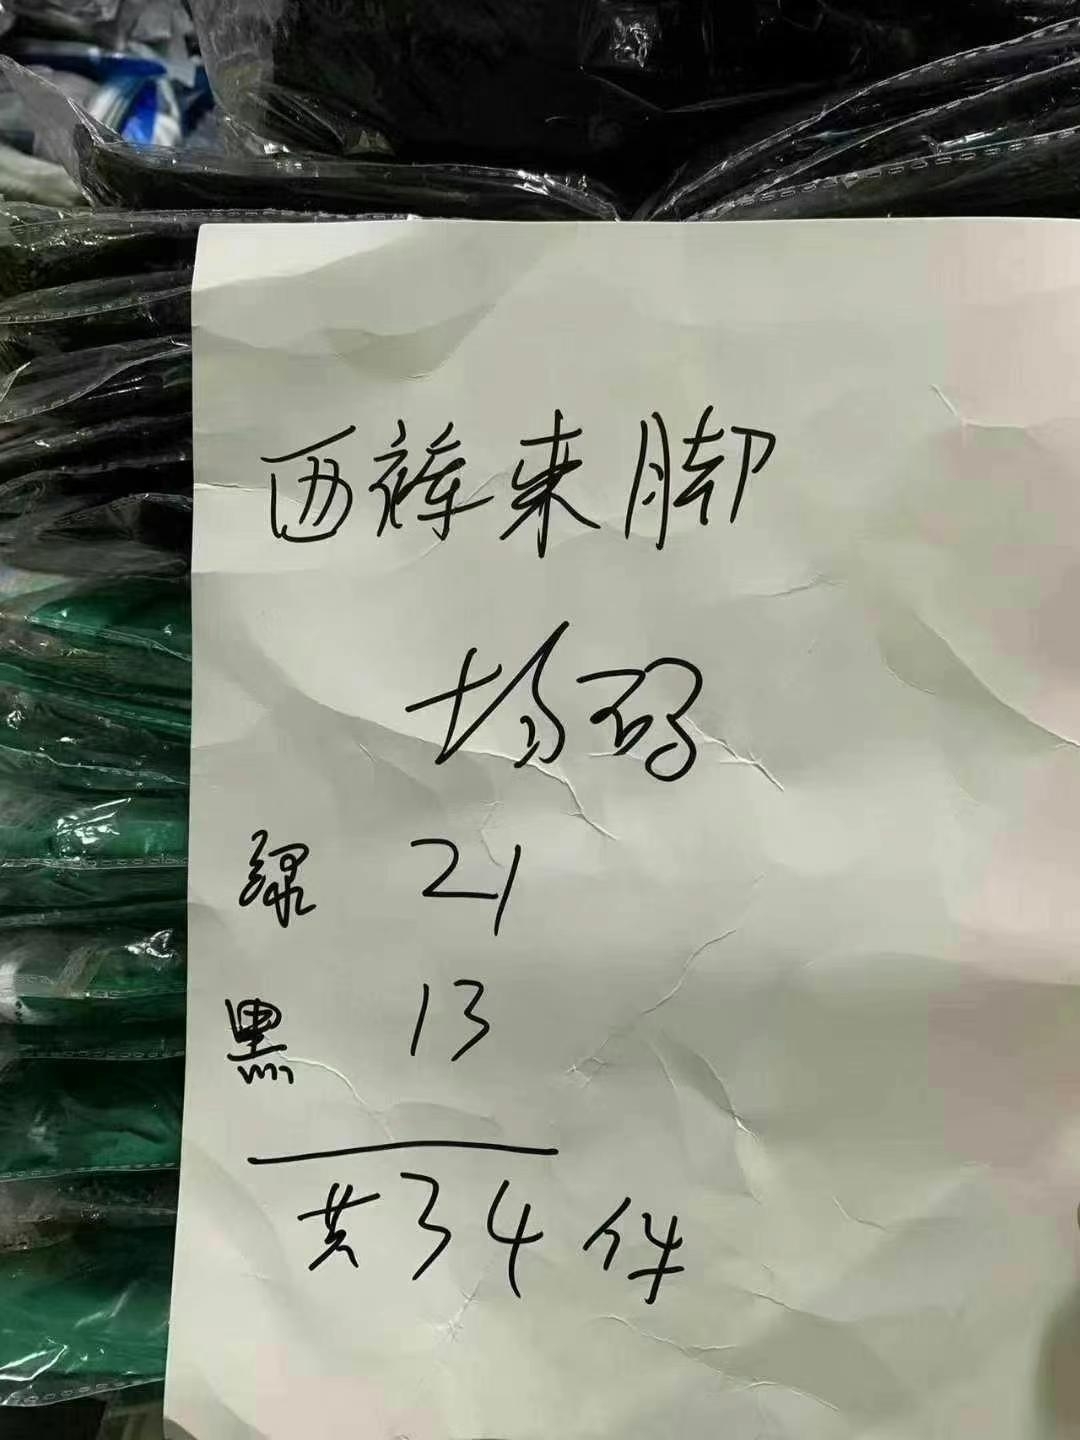 西裤束脚
均码
绿 21
黑 13
共34件